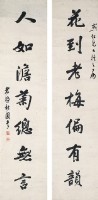 花到老梅偏有韻
人如澹菊總無言